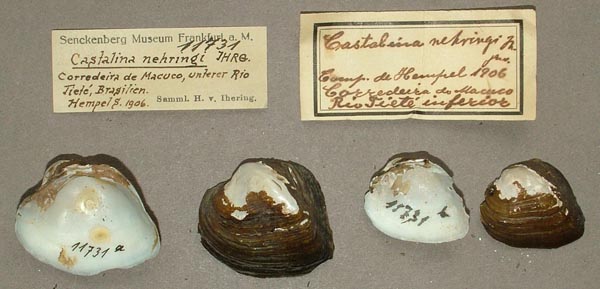 Senckenberg Museum Frankfurt a. M.
11731
Castalina nehringi IHRG.
Corredeira de Macuco, unterer Rio
Tieté, Brasilien.
Hempel S. 1906. Samml. H. v. Ihering.
Castalina nehringi Ih
Comp. de Hempel 1906
Corredeira do Macuco
Rio Tieté inferior
11731 a
11731 b